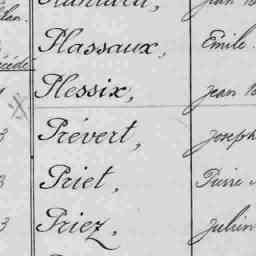 Plassaux, Emile
Plessix, Jean
Prévert, Joseph
Priet, Pierre
Priez, Julien